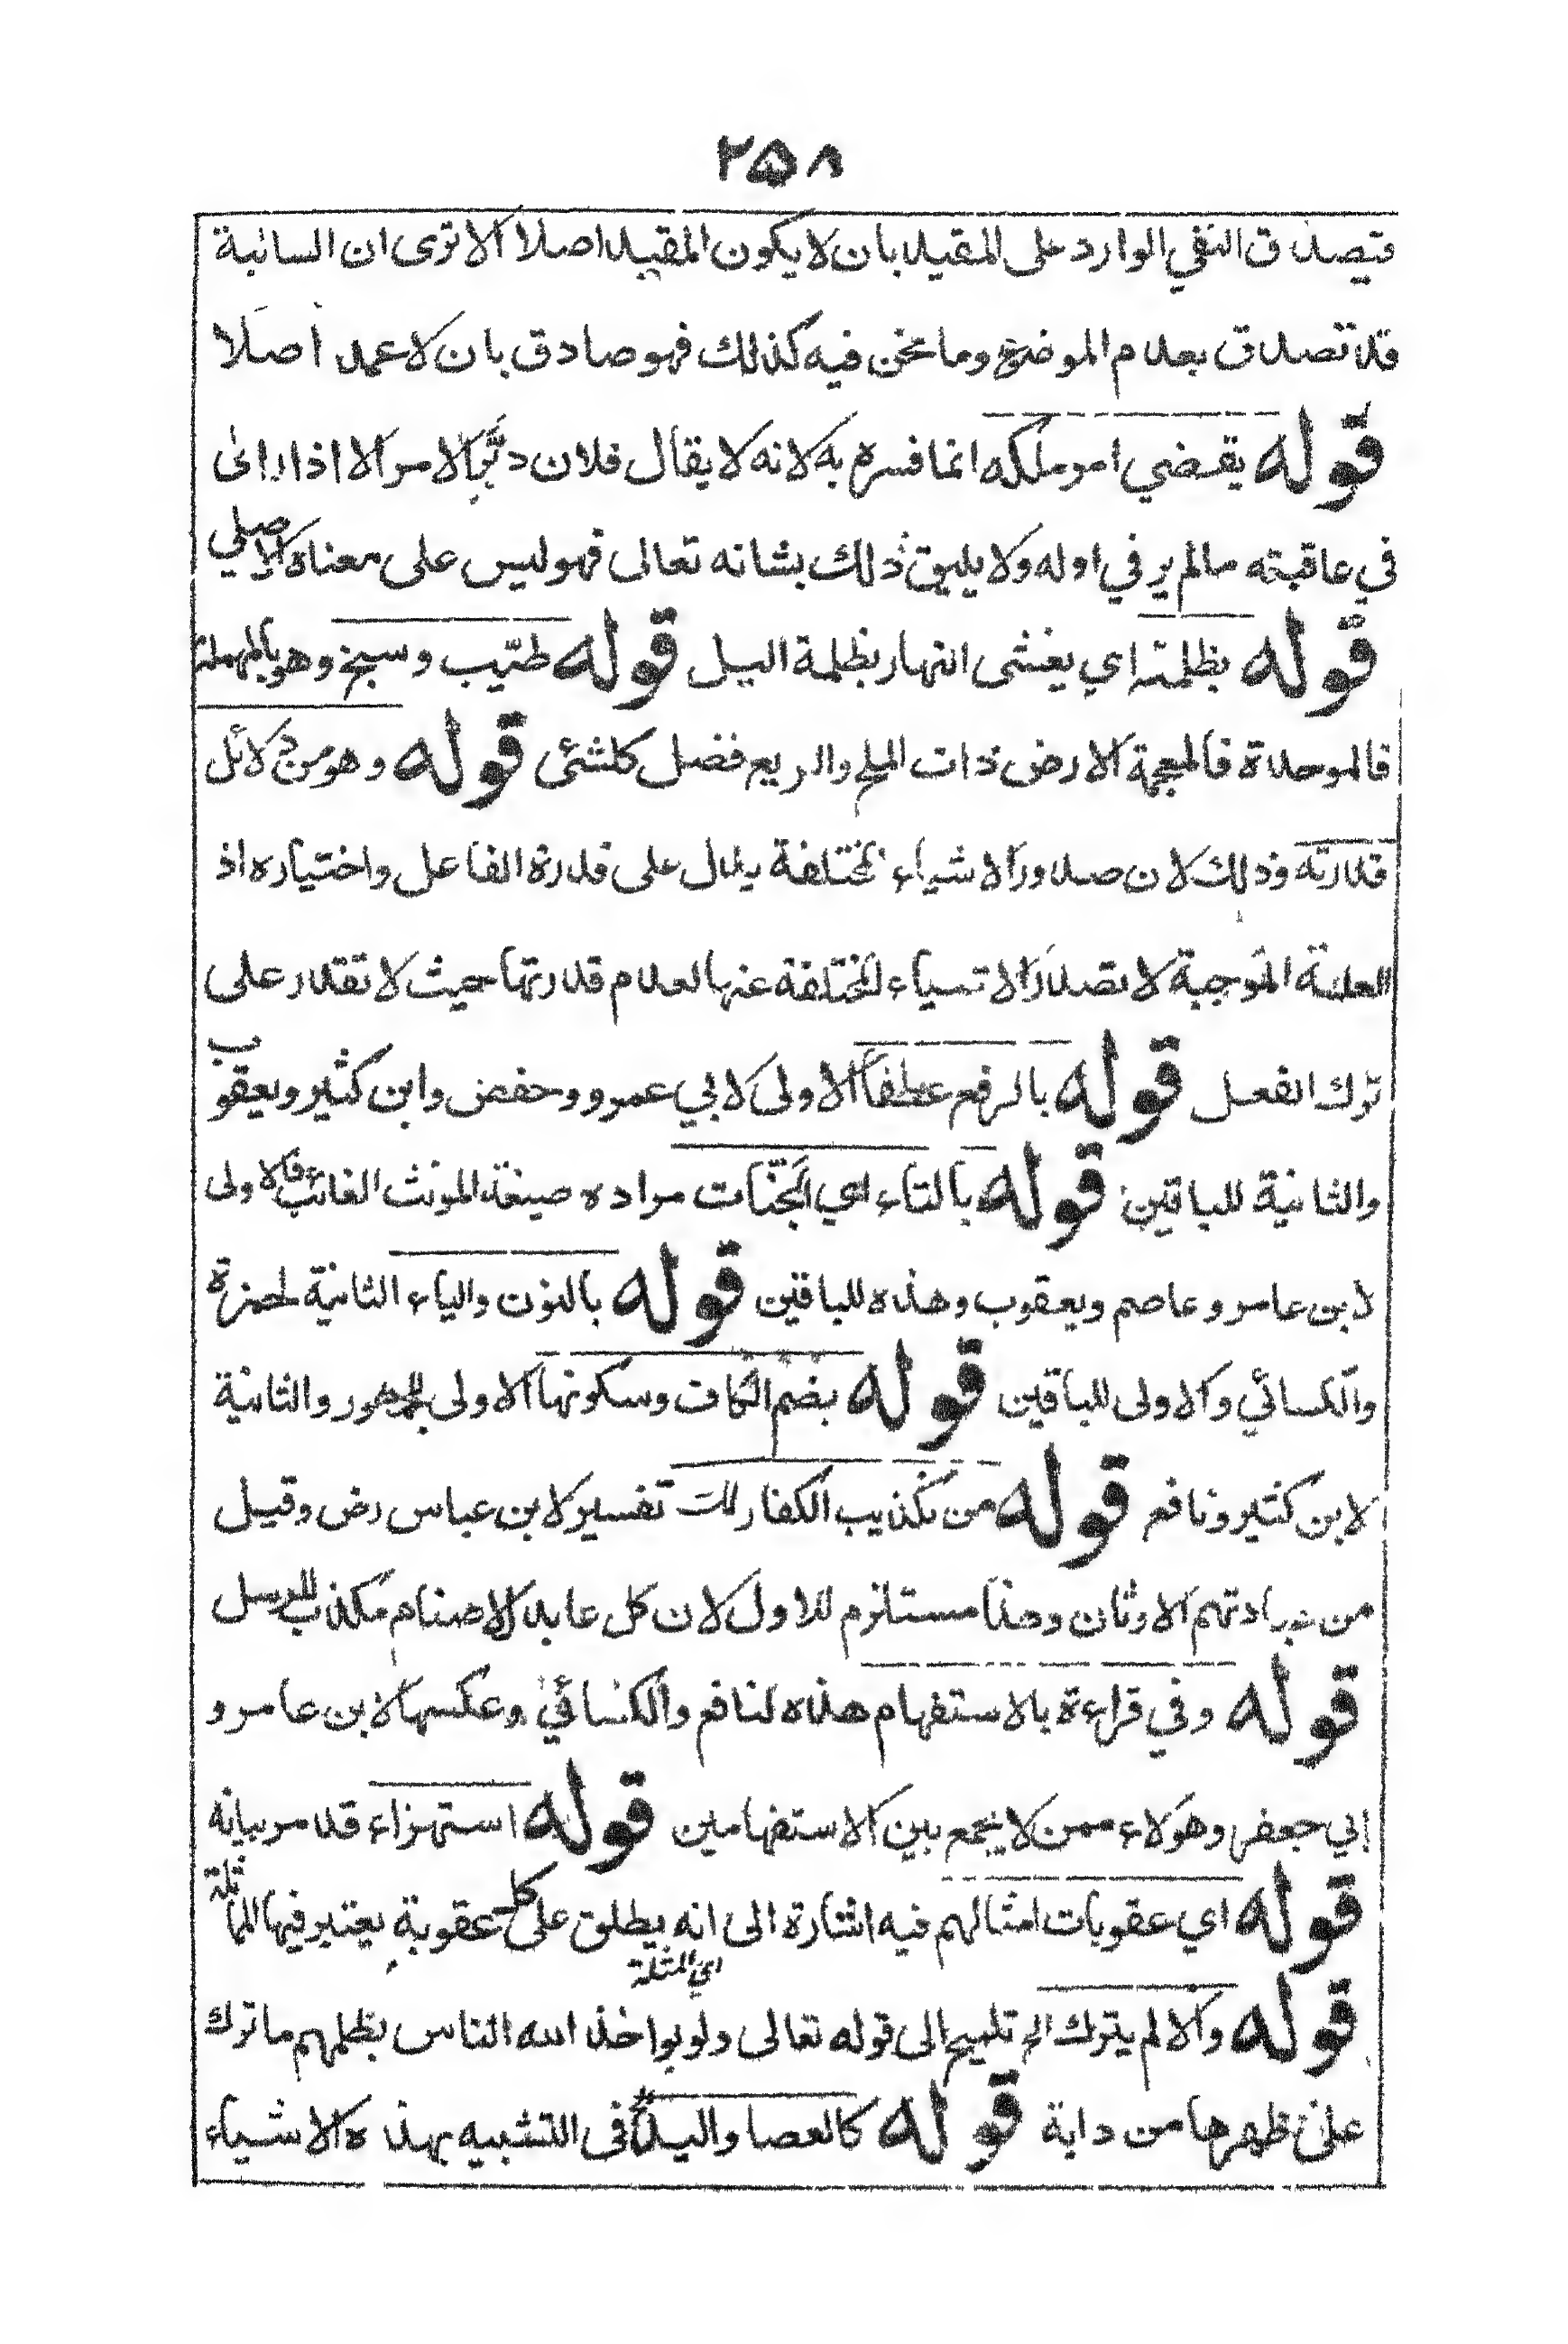 ٢٥٨
فيصدق النفي الوارد على المقيد بان لا يكون المقيد اصلا الا ترى ان السالبة
قد تصدق بعدم الموضوع وما نحن فيه كذلك فهو صادق بان لا عمد اصلا
قوله يقضي امر ملكه انما فسره به لانه لا يقال فلان دبّر الامر الا اذا رائى
في عاقبته مالم ير في اوله ولا يليق ذلك بشانه تعالى فهو ليس على معناه الاصلي
قوله بظلمته اي يغشى النهار بظلمة اليل قوله طيّب وسبخ وهو بالمهملة
فالموحدة فالمعجمة الارض ذات الملح والريع فضل كلشئ قوله وهو من دلائل
قدرته وذلك لان صدور الاشياء المختلفة يدل على قدرة الفاعل واختياره اذ
العلة الموجبة لا تصدر الاشياء المختلفة عنها لعدم قدرتها حيث لا تقدر على
ترك الفعل قوله بالرفع عطفا الاولى لابي عمرو وحفض وابن كثير ويعقوب
والثانية للباقين قوله بالتاء اي الجنّات مراده صيغة المونث الغائب فالاولى
لابن عامر وعاصم ويعقوب وهذه للباقين قوله بالنون والياء الثانية لحمزة
والكسائي والاولى للباقين قوله بضم الكاف وسكونها الاولى للجمهور والثانية
لابن كثير ونافع قوله من تكذيب الكفار لك تفسير لابن عباس رض وقيل
من عبادتهم الاوثان وهذا مستلزم للاول لان كل عابد الاصنام مكذب للرسل
قوله وفي قراءة بالاستفهام هذه لنافع والكسائي وعكسها لابن عامر و
ابي جعفر وهولاء ممن لا يجمع بين الاستفهامين قوله استهزاء قد مر بيانه
قوله اي عقوبات امثالهم فيه اشارة الى انه يطلق على كل عقوبة يعتبر فيها المماثلة
اي المثلة
قوله والا لم يترك الخ تلميح الى قوله تعالى ولو يواخذ الله الناس بظلمهم ما ترك
على ظهرها من دابة قوله كالعصا واليد الخ في التشبيه بهذه الاشياء